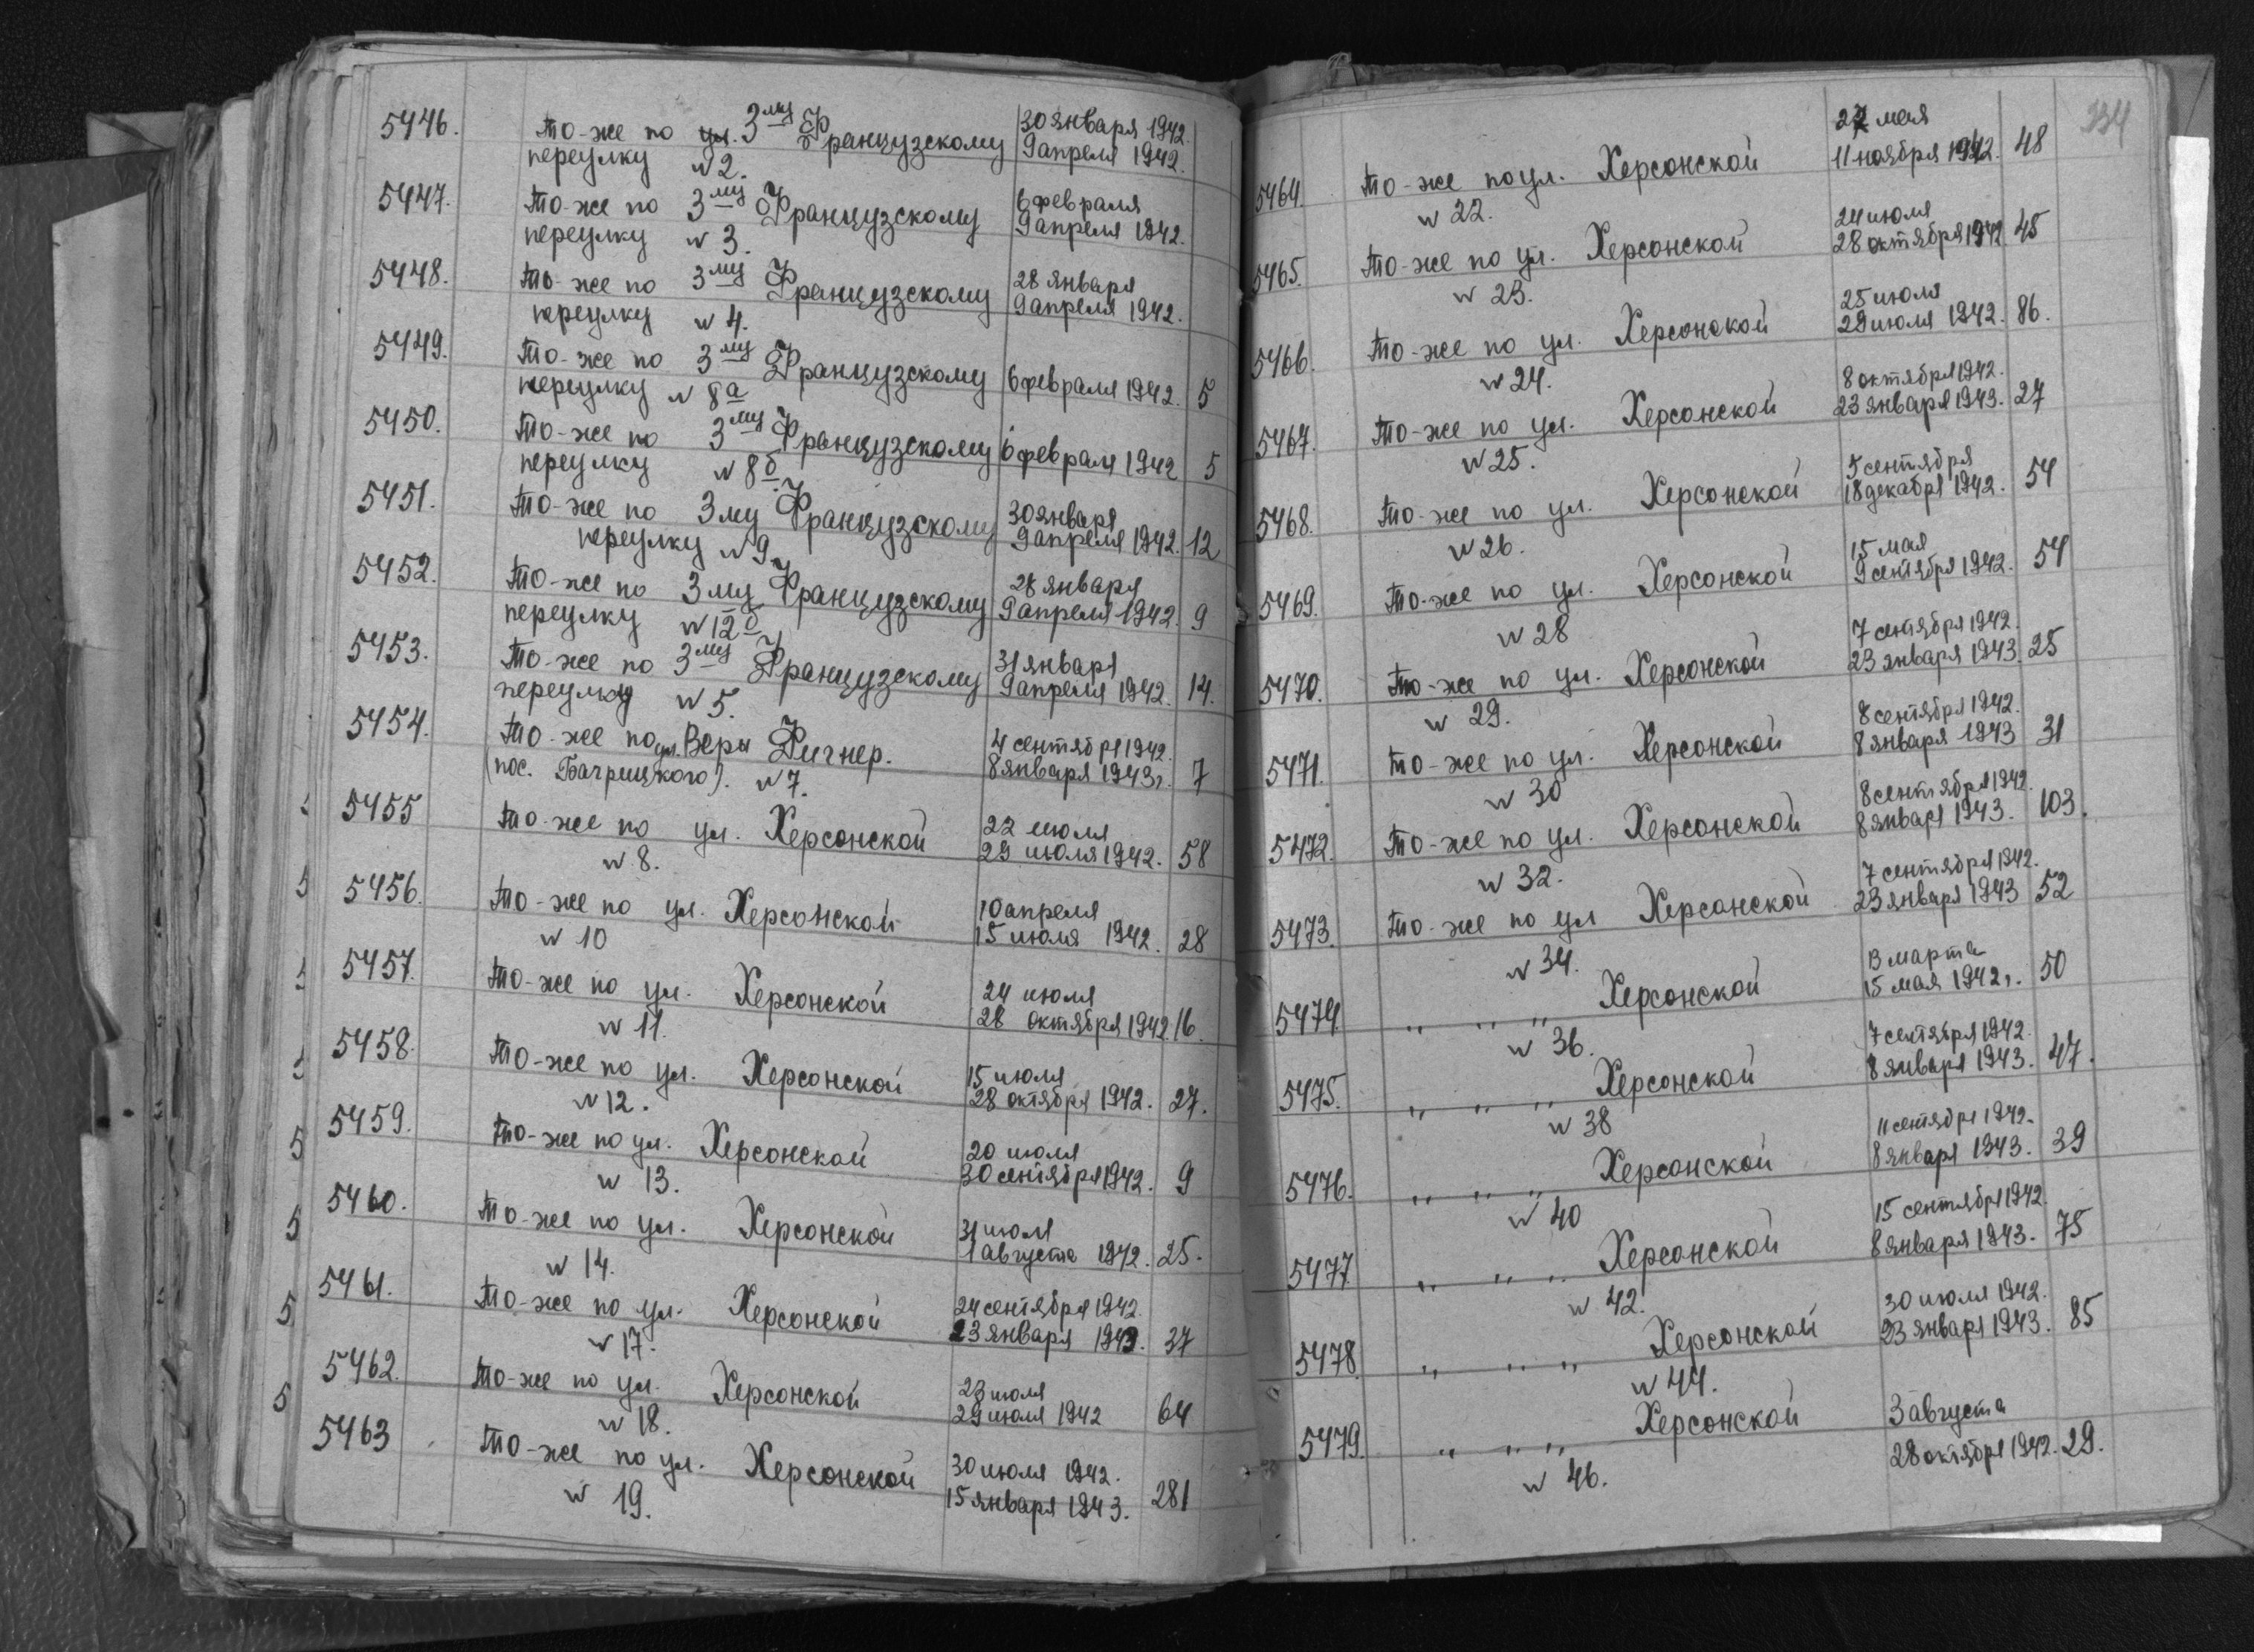 5446. То-же по ул. 3му Французскому 30 января 1942.
переулку № 2. 9 апреля 1942.
5447. То-же по 3му Французскому 6 февраля
переулку № 3. 9 апреля 1942.
5448. То-же по 3му Французскому 28 января
переулку № 4. 9 апреля 1942.
5449. То-же по 3му Французскому 6 февраля 1942. 5
переулку № 8а
5450. То-же по 3му Французскому 6 феврал 1942 5
переулку № 8б.
5451. То-же по 3му Французскому 30 января
переулку № 9. 9 апреля 1942. 12
5452. То-же по 3му Французскому 28 января
переулку № 12б 9 апреля 1942. 9
5453. То-же по 3му Французскому 31 января
переулку № 5. 9 апреля 1942. 14.
5454. То-же по ул. Веры Фигнер. 4 сентября 1942.
(пос. Багрицкого). № 7. 8 января 1943г. 7
5455 То-же по ул. Херсонской 22 июля
№ 8. 29 июля 1942. 58
5456. То-же по ул. Херсонской 10 апреля
№ 10 15 июля 1942. 28
5457. То-же по ул. Херсонской 24 июля
№ 11. 28 октября 1942. 16.
5458. То-же по ул. Херсонской 15 июля
№ 12. 28 октября 1942. 27.
5459. То-же по ул. Херсонской 20 июля
№ 13. 30 сентября 1942. 9
5460. То-же по ул. Херсонской 31 июля
№ 14. 1 августа 1942. 25.
5461. То-же по ул. Херсонской 24 сентября 1942.
№ 17. 23 января 1943. 37
5462. То-же по ул. Херсонской 23 июля
№ 18. 29 июля 1942 64
5463 То-же по ул. Херсонской 30 июля 1942.
№ 19. 15 января 1943. 281
334
27 мая
5464. То-же по ул. Херсонской 11 ноября 1942. 48
№ 22.
24 июля
5465. То-же по ул. Херсонской 28 октября 1942 45
№ 23.
25 июля
5466. То-же по ул. Херсонской 29 июля 1942. 86.
№ 24.
8 октября 1942.
5467. То-же по ул. Херсонской 23 января 1943. 27
№ 25.
5 сентября
5468. То-же по ул. Херсонской 18 декабря 1942. 54
№ 26.
15 мая
5469. То-же по ул. Херсонской 9 сентября 1942. 54
№ 28
7 сентября 1942.
5470. То-же по ул. Херсонской 23 января 1943. 25
№ 29.
8 сентября 1942.
5471. То-же по ул. Херсонской 8 января 1943 31
№ 30
8 сентября 1942.
5472. То-же по ул. Херсонской 8 января 1943. 103.
№ 32.
7 сентября 1942.
5473. То-же по ул Херсонской 23 января 1943 52
№ 34.
13 марта
5474. " " " Херсонской 15 мая 1942г. 50
№ 36.
7 сентября 1942.
5475. " " " Херсонской 8 января 1943. 47.
№ 38
11 сентября 1942.
5476. " " " Херсонской 8 января 1943. 39
№ 40
15 сентября 1942.
5477. " " " Херсонской 8 января 1943. 75
№ 42.
30 июля 1942.
5478 " " " Херсонской 23 января 1943. 85
№ 44.
3 августа
5479. " " " Херсонской 28 октября 1942. 29.
№ 46.